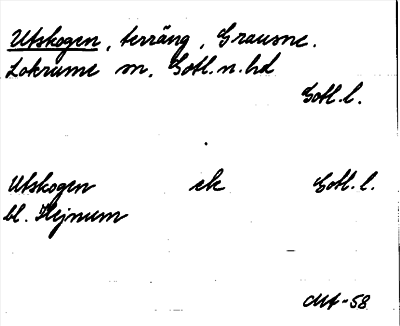 Utskogen, terräng, Grausne.
Lokrume sn. Gotl. n. hd
Gotl. l.
Utskogen ek Gotl. l.
bl. Hejnum
-58